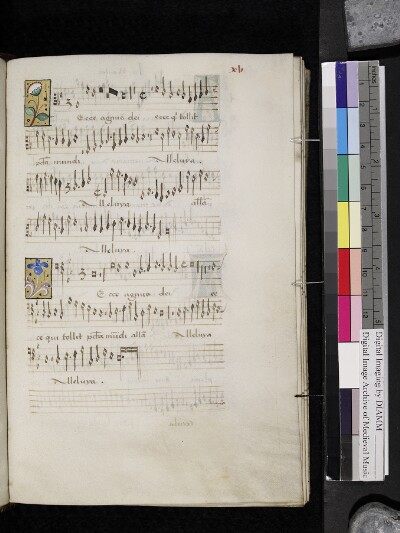 xlv
Ecce agnus dei ecce q̄ tollit
pctā mundi Alleluya.
Alleluya alla
Alleluya.
Ecce agnus dei ec
ce qui tollit pctā mūdi allā Alleluya
Alleluya.
Digital Imaging by DIAMM
Digital Image Archive of Medieval Music